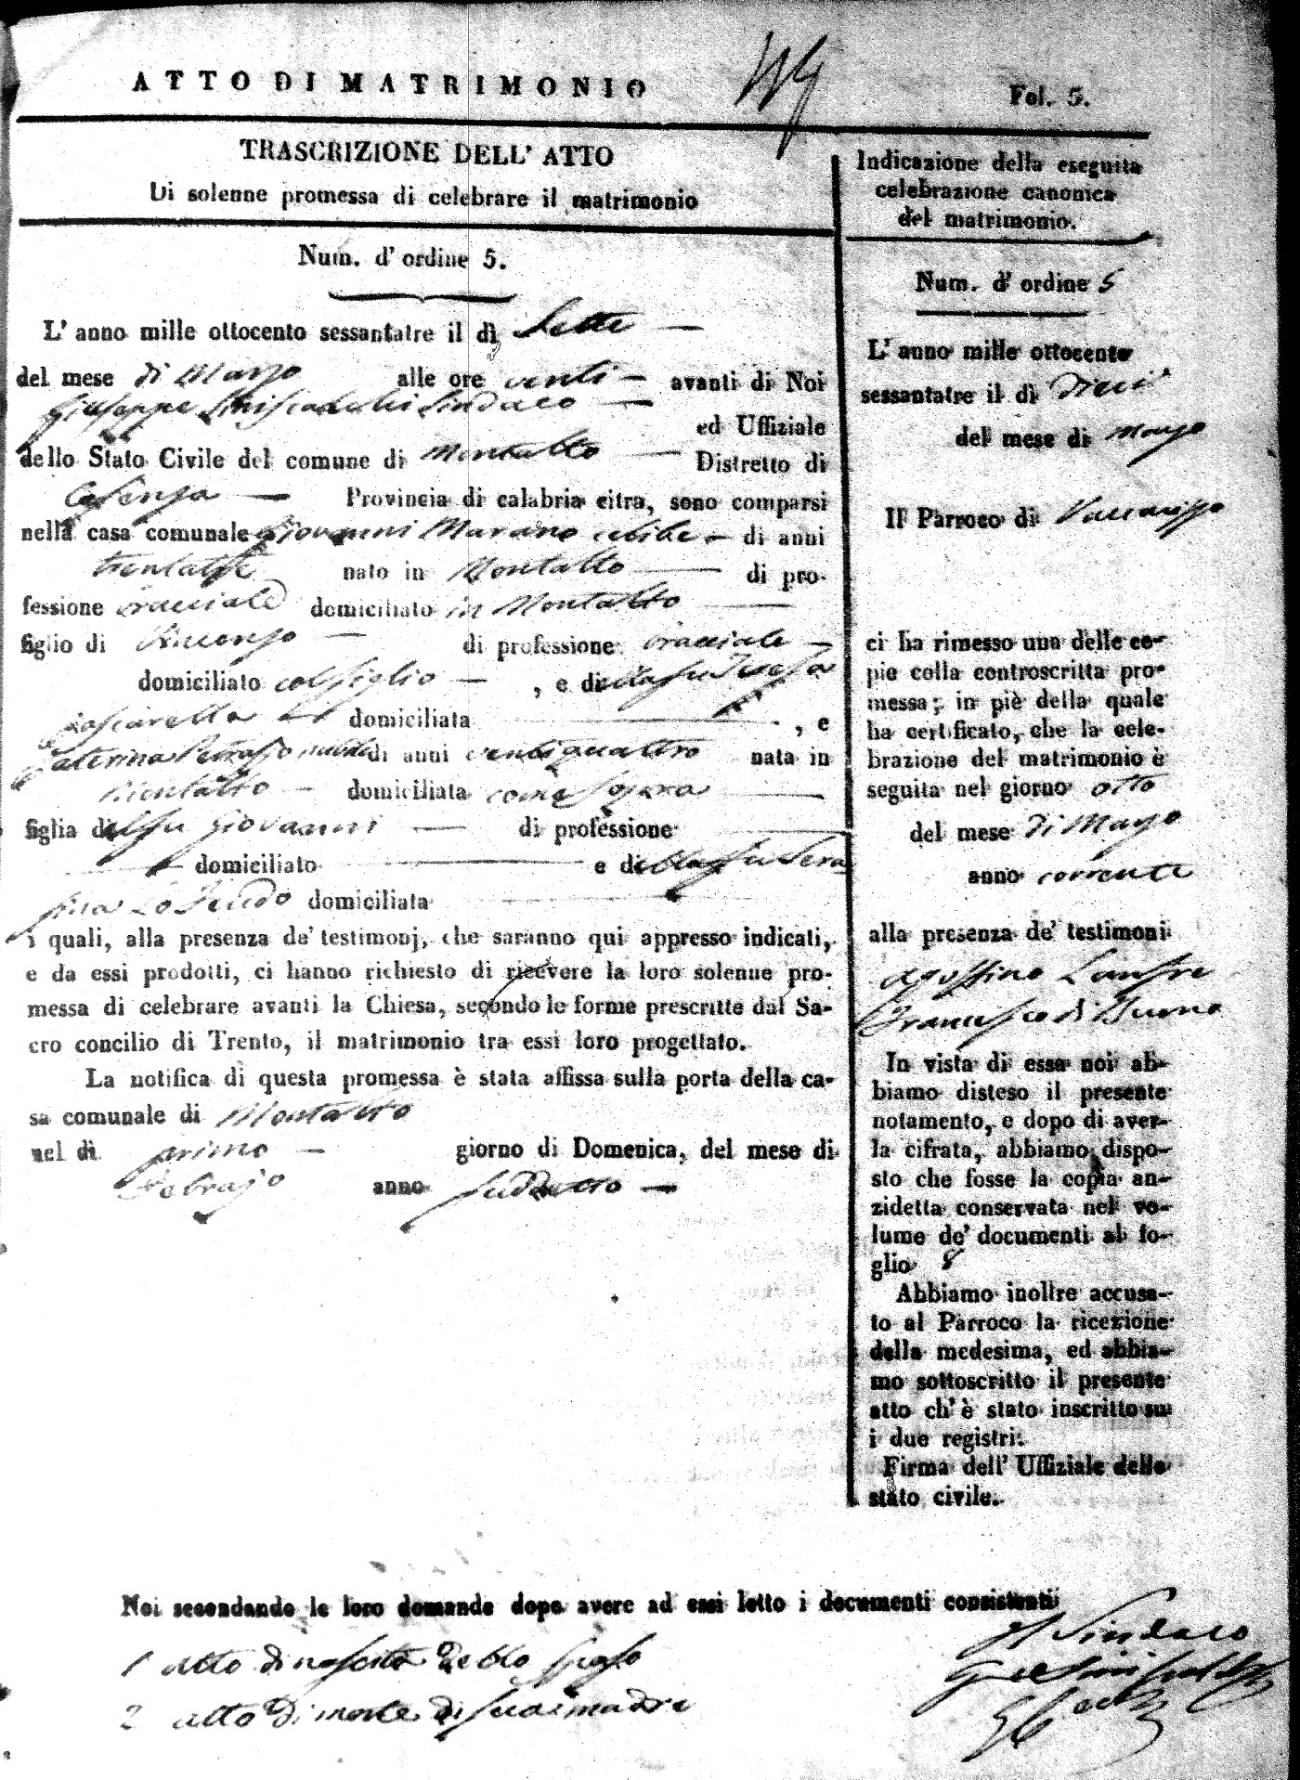 ATTO DI MATRIMONIO
Fol. 5.
TRASCRIZIONE DELL' ATTO
Di solenne promessa di celebrare il matrimonio
Num. d' ordine 5.
L' anno mille ottocento sessantatre il dì Sette
del mese di Marzo alle ore venti avanti di Noi
Giuseppe Sindaco
ed Uffiziale
dello Stato Civile del comune di Montalto Distretto di
Cosenza Provincia di calabria citra, sono comparsi
nella casa comunale Giovanni Marano celibe di anni
trentatre nato in Montalto di pro-
fessione bracciale domiciliato in Montalto
figlio di Vincenzo di professione bracciale
domiciliato col figlio , e della fu Teresa
domiciliata , e
Caterina nubile di anni ventiquattro nata in
Montalto domiciliata come sopra
figlia del fu Giovanni di professione
domiciliato e della fu Sera
fina Lo Feudo domiciliata
i quali, alla presenza de' testimonj, che saranno qui appresso indicati,
e da essi prodotti, ci hanno richiesto di ricevere la loro solenne pro-
messa di celebrare avanti la Chiesa, secondo le forme prescritte dal Sa-
cro concilio di Trento, il matrimonio tra essi loro progettato.
La notifica di questa promessa è stata affissa sulla porta della ca-
sa comunale di Montalto
nel dì primo giorno di Domenica, del mese di
Febrajo anno suddetto
Indicazione della eseguita
celebrazione canonica
del matrimonio.
Num. d' ordine 5
L' anno mille ottocento
sessantatre il dì Dieci
del mese di Marzo
Il Parroco di Vaccarizzo
ci ha rimesso una delle co-
pie colla controscritta pro-
messa; in piè della quale
ha certificato, che la cele-
brazione del matrimonio è
seguita nel giorno otto
del mese di Marzo
anno corrente
alla presenza de' testimoni
Agostino
Francesco di Buono
In vista di essa noi ab-
biamo disteso il presente
notamento, e dopo di aver-
la cifrata, abbiamo dispo-
sto che fosse la copia an-
zidetta conservata nel vo-
lume de' documenti al fo-
glio 8
Abbiamo inoltre accusa-
to al Parroco la ricezione
della medesima, ed abbia-
mo sottoscritto il presente
atto ch' è stato inscritto su
i due registri.
Firma dell' Uffiziale dello
stato civile.
Noi secondando le loro domande dopo avere ad essi letto i documenti consistenti
1 atto di nascita dello sposo
2 atto di morte di sua madre
Il Sindaco